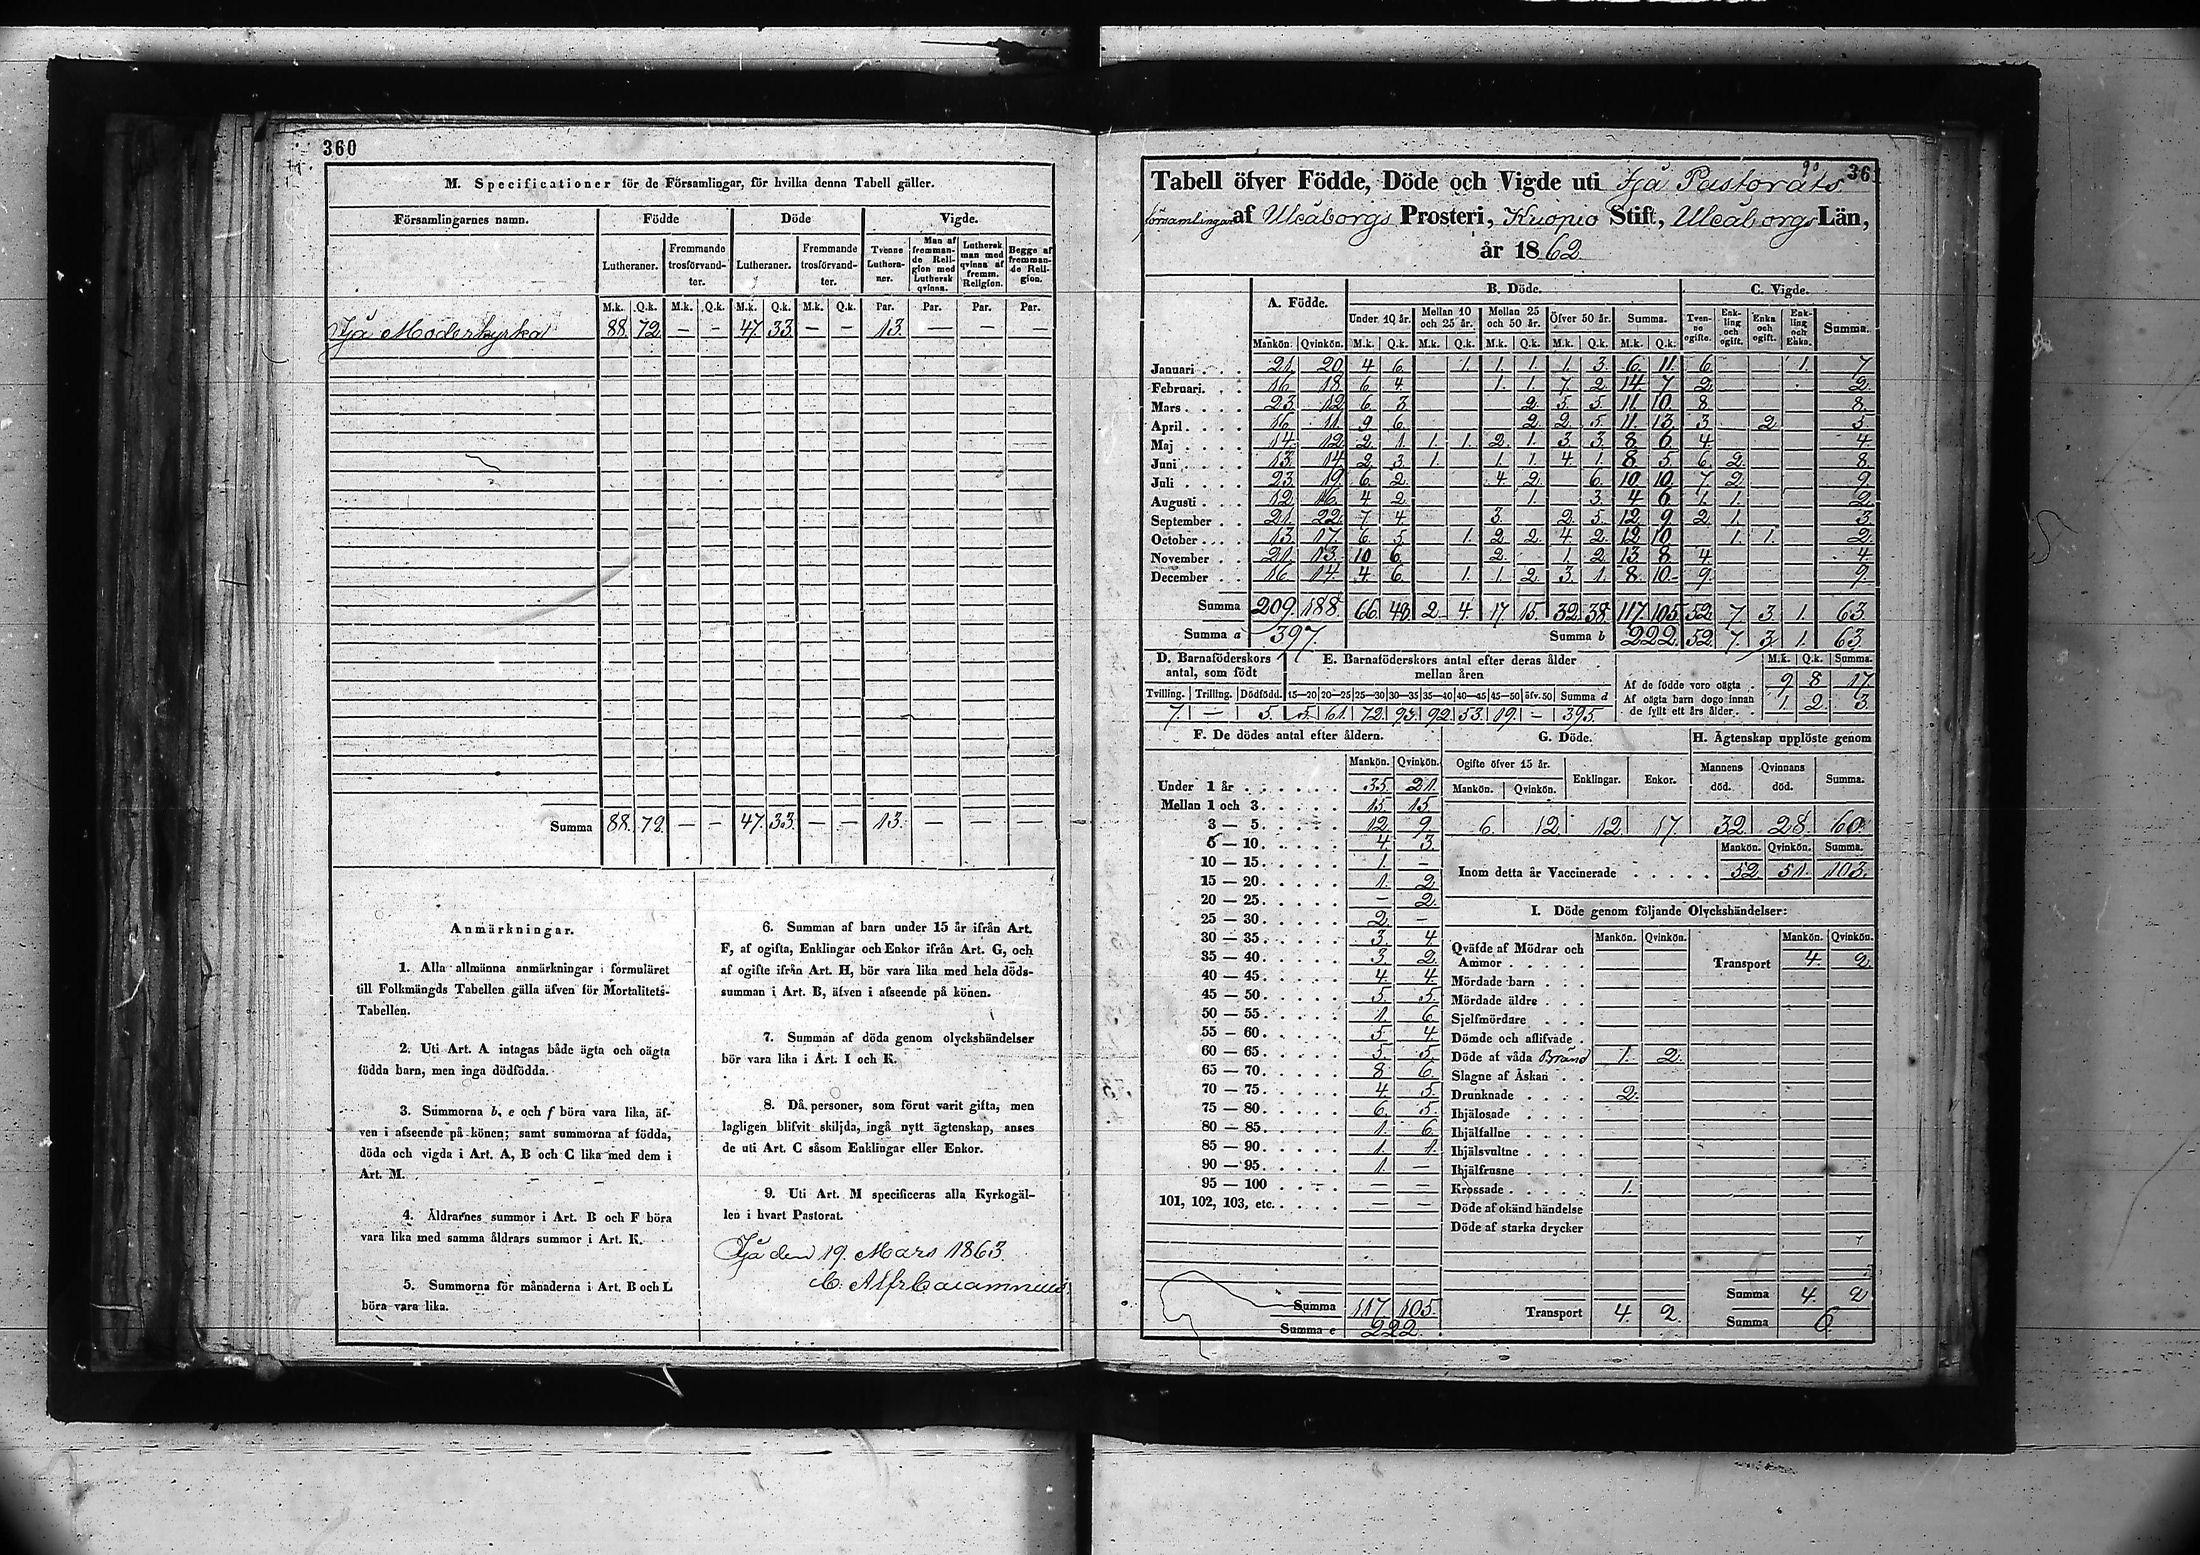 360
M. Specificationer för de Församlingar, för hvilka denna Tabell gäller.
Församlingarnes namn. Födde Döde Vigde.
Lutheraner. Fremmande trosförvandter. Lutheraner. Fremmande trosförvandter. Tvenne Lutheraner. Man af fremmande Religion med Luthersk qvinna. Luthersk man med qvinna af fremm. Religion. Begge af fremmande Religion.
M.k. Q.k. M.k. Q.k. M.k. Q.k. M.k. Q.k. Par. Par. Par. Par.
Ijå Moderkyrka 88. 72. — — 47. 33. — — 13. — — —
Summa 88. 72. — — 47. 33. — — 13. — — —
Anmärkningar.
1. Alla allmänna anmärkningar i formuläret
till Folkmängds Tabellen gälla äfven för Mortalitets-
Tabellen.
2. Uti Art. A intagas både ägta och oägta
födda barn, men inga dödfödda.
3. Summorna b, e och f böra vara lika, äf-
ven i afseende på könen; samt summorna af födda,
döda och vigda i Art. A, B och C lika med dem i
Art. M.
4. Åldrarnes summor i Art. B och F böra
vara lika med samma åldrars summor i Art. K.
5. Summorna för månaderna i Art. B och L
böra vara lika.
6. Summan af barn under 15 år ifrån Art.
F, af ogifta, Enklingar och Enkor ifrån Art. G, och
af ogifte ifrån Art. H, bör vara lika med hela döds-
summan i Art. B, äfven i afseende på könen.
7. Summan af döda genom olyckshändelser
bör vara lika i Art. I och K.
8. Då personer, som förut varit gifta, men
lagligen blifvit skiljda, ingå nytt ägtenskap, anses
de uti Art. C såsom Enklingar eller Enkor.
9. Uti Art. M specificeras alla Kyrkogäl-
len i hvart Pastorat.
Ijå den 19. Mars 1863
361
Tabell öfver Födde, Döde och Vigde uti Ijå Pastorats
församlingar af Uleåborgs Prosteri, Kuopio Stift, Uleåborgs Län,
år 1862
A. Födde. B. Döde. C. Vigde.
Under 10 år. Mellan 10 och 25 år. Mellan 25 och 50 år. Öfver 50 år. Summa. Tvenne ogifte. Enkling och ogift. Enka och ogift. Enkling och Enka. Summa.
Mankön. Qvinkön. M.k. Q.k. M.k. Q.k. M.k. Q.k. M.k. Q.k. M.k. Q.k.
Januari 21. 20. 4 6. 1. 1. 1. 1. 3. 6. 11. 6. 1. 7.
Februari. 16 18 6 4. 1. 1. 7. 2. 14 7 2. 2.
Mars 23. 12. 6. 3. 2. 5. 5. 11. 10. 8. 8.
April 16. 11. 9 6. 2. 2. 5. 11. 13. 3. 2. 5.
Maj 14. 12. 2. 1. 1. 1. 2. 1. 3. 3. 8. 6. 4. 4.
Juni 13. 14. 2. 3. 1. 1. 1. 4. 1. 8. 5. 6. 2. 8.
Juli 23. 19. 6. 2. 4. 2. 6. 10. 10. 7. 2. 9.
Augusti 12. 16. 4 2. 1. 3. 4 6 1. 1. 2.
September 21. 22. 7 4. 3. 2. 5. 12. 9. 2. 1. 3.
October 13. 17. 6. 5. 1. 2. 2. 4. 2. 12. 10. 1. 1. 2.
November 21. 13. 10 6. 2. 1. 2. 13. 8. 4. 4.
December 16. 14. 4 6. 1. 1. 2. 3. 1. 8. 10. 9. 9.
Summa 209. 188. 66. 48. 2. 4. 17 15. 32. 38. 117. 105. 52. 7. 3. 1. 63.
Summa a 397. Summa b 222. 52. 7. 3. 1. 63.
D. Barnaföderskors antal, som födt
E. Barnaföderskors antal efter deras ålder mellan åren
M.k. Q.k. Summa.
Tvilling. Trilling. Dödfödd. 15—20 20—25 25—30 30—35 35—40 40—45 45—50 öfv. 50 Summa d
7. — 5. 5. 61. 72. 93. 92. 53. 19. — 395.
Af de födde voro oägta 9. 8. 17.
Af oägta barn dogo innan
de fyllt ett års ålder 1. 2. 3.
F. De dödes antal efter åldern.
Mankön. Qvinkön.
Under 1 år 35. 21.
Mellan 1 och 3 15. 15
3 — 5 12. 9.
5 — 10 4. 3.
10 — 15 1. —
15 — 20 1. 2.
20 — 25 — 2.
25 — 30 2. —
30 — 35 3. 4.
35 — 40 3. 2.
40 — 45 4 4.
45 — 50 5. 5.
50 — 55 1. 6
55 — 60 5. 4.
60 — 65 5. 5.
65 — 70 8. 6.
70 — 75 4. 5.
75 — 80 6. 5.
80 — 85 1. 6.
85 — 90 1. 1.
90 — 95 1. —
95 — 100 — —
101, 102, 103, etc. — —
Summa 117. 105.
Summa e 222.
G. Döde.
Ogifte öfver 15 år. Enklingar. Enkor.
Mankön. Qvinkön.
6. 12. 12. 17.
H. Ägtenskap upplöste genom
Mannens död. Qvinnans död. Summa.
32. 28. 60.
Mankön. Qvinkön. Summa.
Inom detta år Vaccinerade 52. 51. 103.
I. Döde genom följande Olyckshändelser:
Mankön. Qvinkön. Mankön. Qvinkön.
Qväfde af Mödrar och
Ammor
Transport 4. 2.
Mördade barn
Mördade äldre
Sjelfmördare
Dömde och aflifvade
Döde af våda Bränd 1. 2.
Slagne af Åskan
Drunknade 2.
Ihjälosade
Ihjälfallne
Ihjälsvultne
Ihjälfrusne
Krossade 1.
Döde af okänd händelse
Döde af starka drycker
Transport 4. 2.
Summa 4. 2
Summa 6.